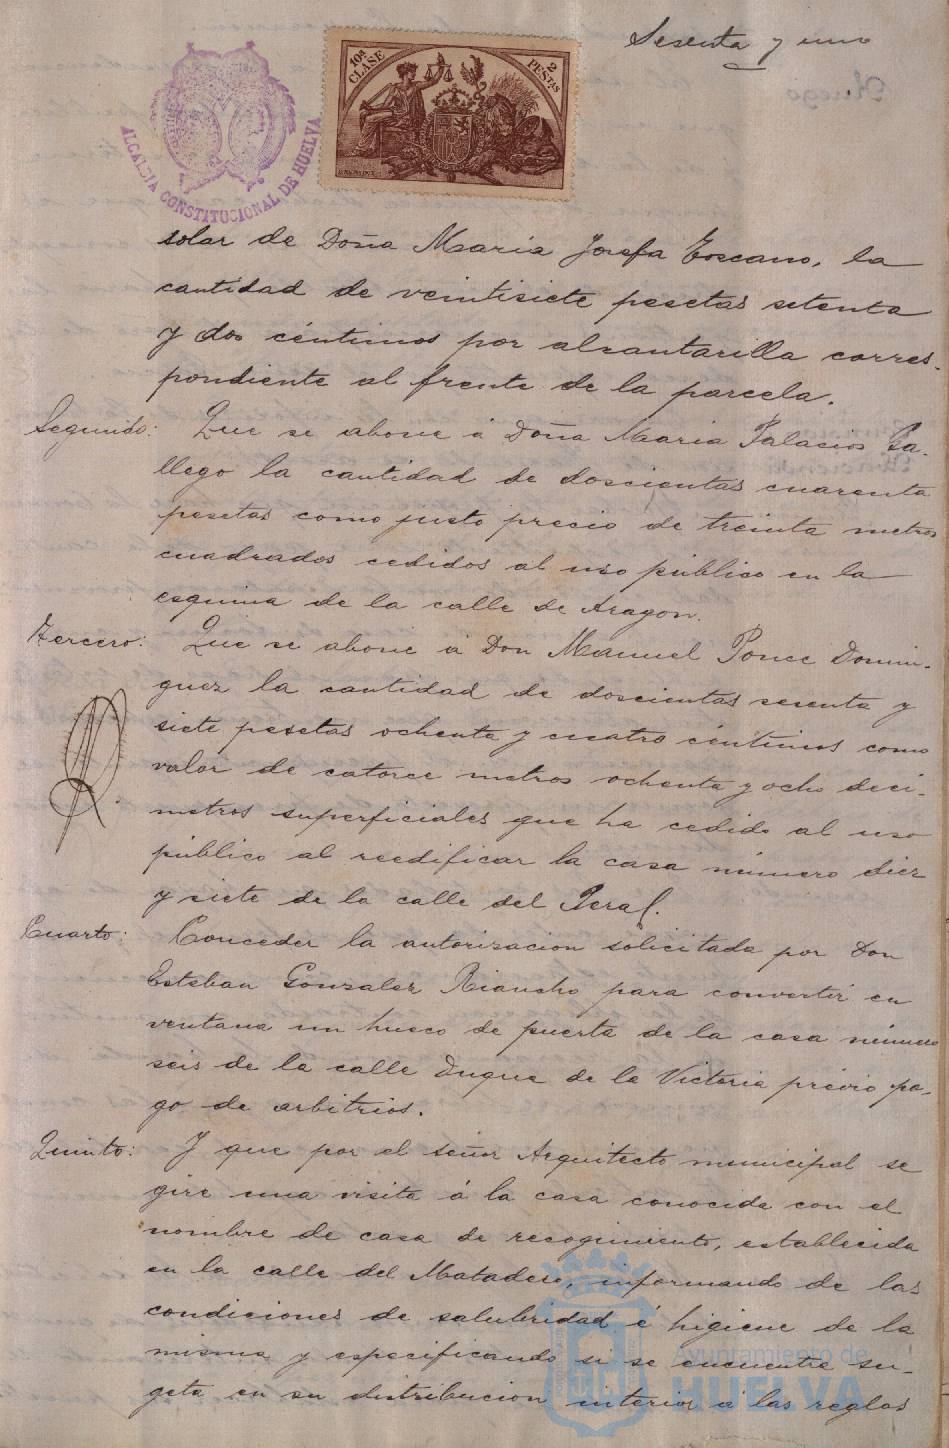 Sesenta y uno
10ª CLASE
2 PESETAS
ALCALDIA CONSTITUCIONAL DE HUELVA
solar de Doña Maria Josefa Toscano, la
cantidad de veintisiete pesetas setenta
y dos céntimos por alcantarilla corres-
pondiente al frente de la parcela.
Segundo: Que se abone á Doña Maria Palacios Ga-
llego la cantidad de doscientas cuarenta
pesetas como justo precio de treinta metros
cuadrados cedidos al uso público en la
esquina de la calle de Aragon.
Tercero: Que se abone á Don Manuel Ponce Domin-
guez la cantidad de doscientas sesenta y
siete pesetas ochenta y cuatro céntimos como
valor de catorce metros ochenta y ocho deci-
metros superficiales que ha cedido al uso
público al reedificar la casa número diez
y siete de la calle del Peral.
Cuarto: Conceder la autorizacion solicitada por Don
Esteban Gonzalez Riancho para convertir en
ventana un hueco de puerta de la casa número
seis de la calle Duque de la Victoria prévio pa-
go de arbitrios.
Quinto: Y que por el señor Arquitecto municipal se
gire una visita á la casa conocida con el
nombre de casa de recogimiento, establecida
en la calle del Matadero, informando de las
condiciones de salubridad é higiene de la
misma y especificando si se encuentra su-
geta en su distribucion interior á las reglas
Ayuntamiento de
HUELVA